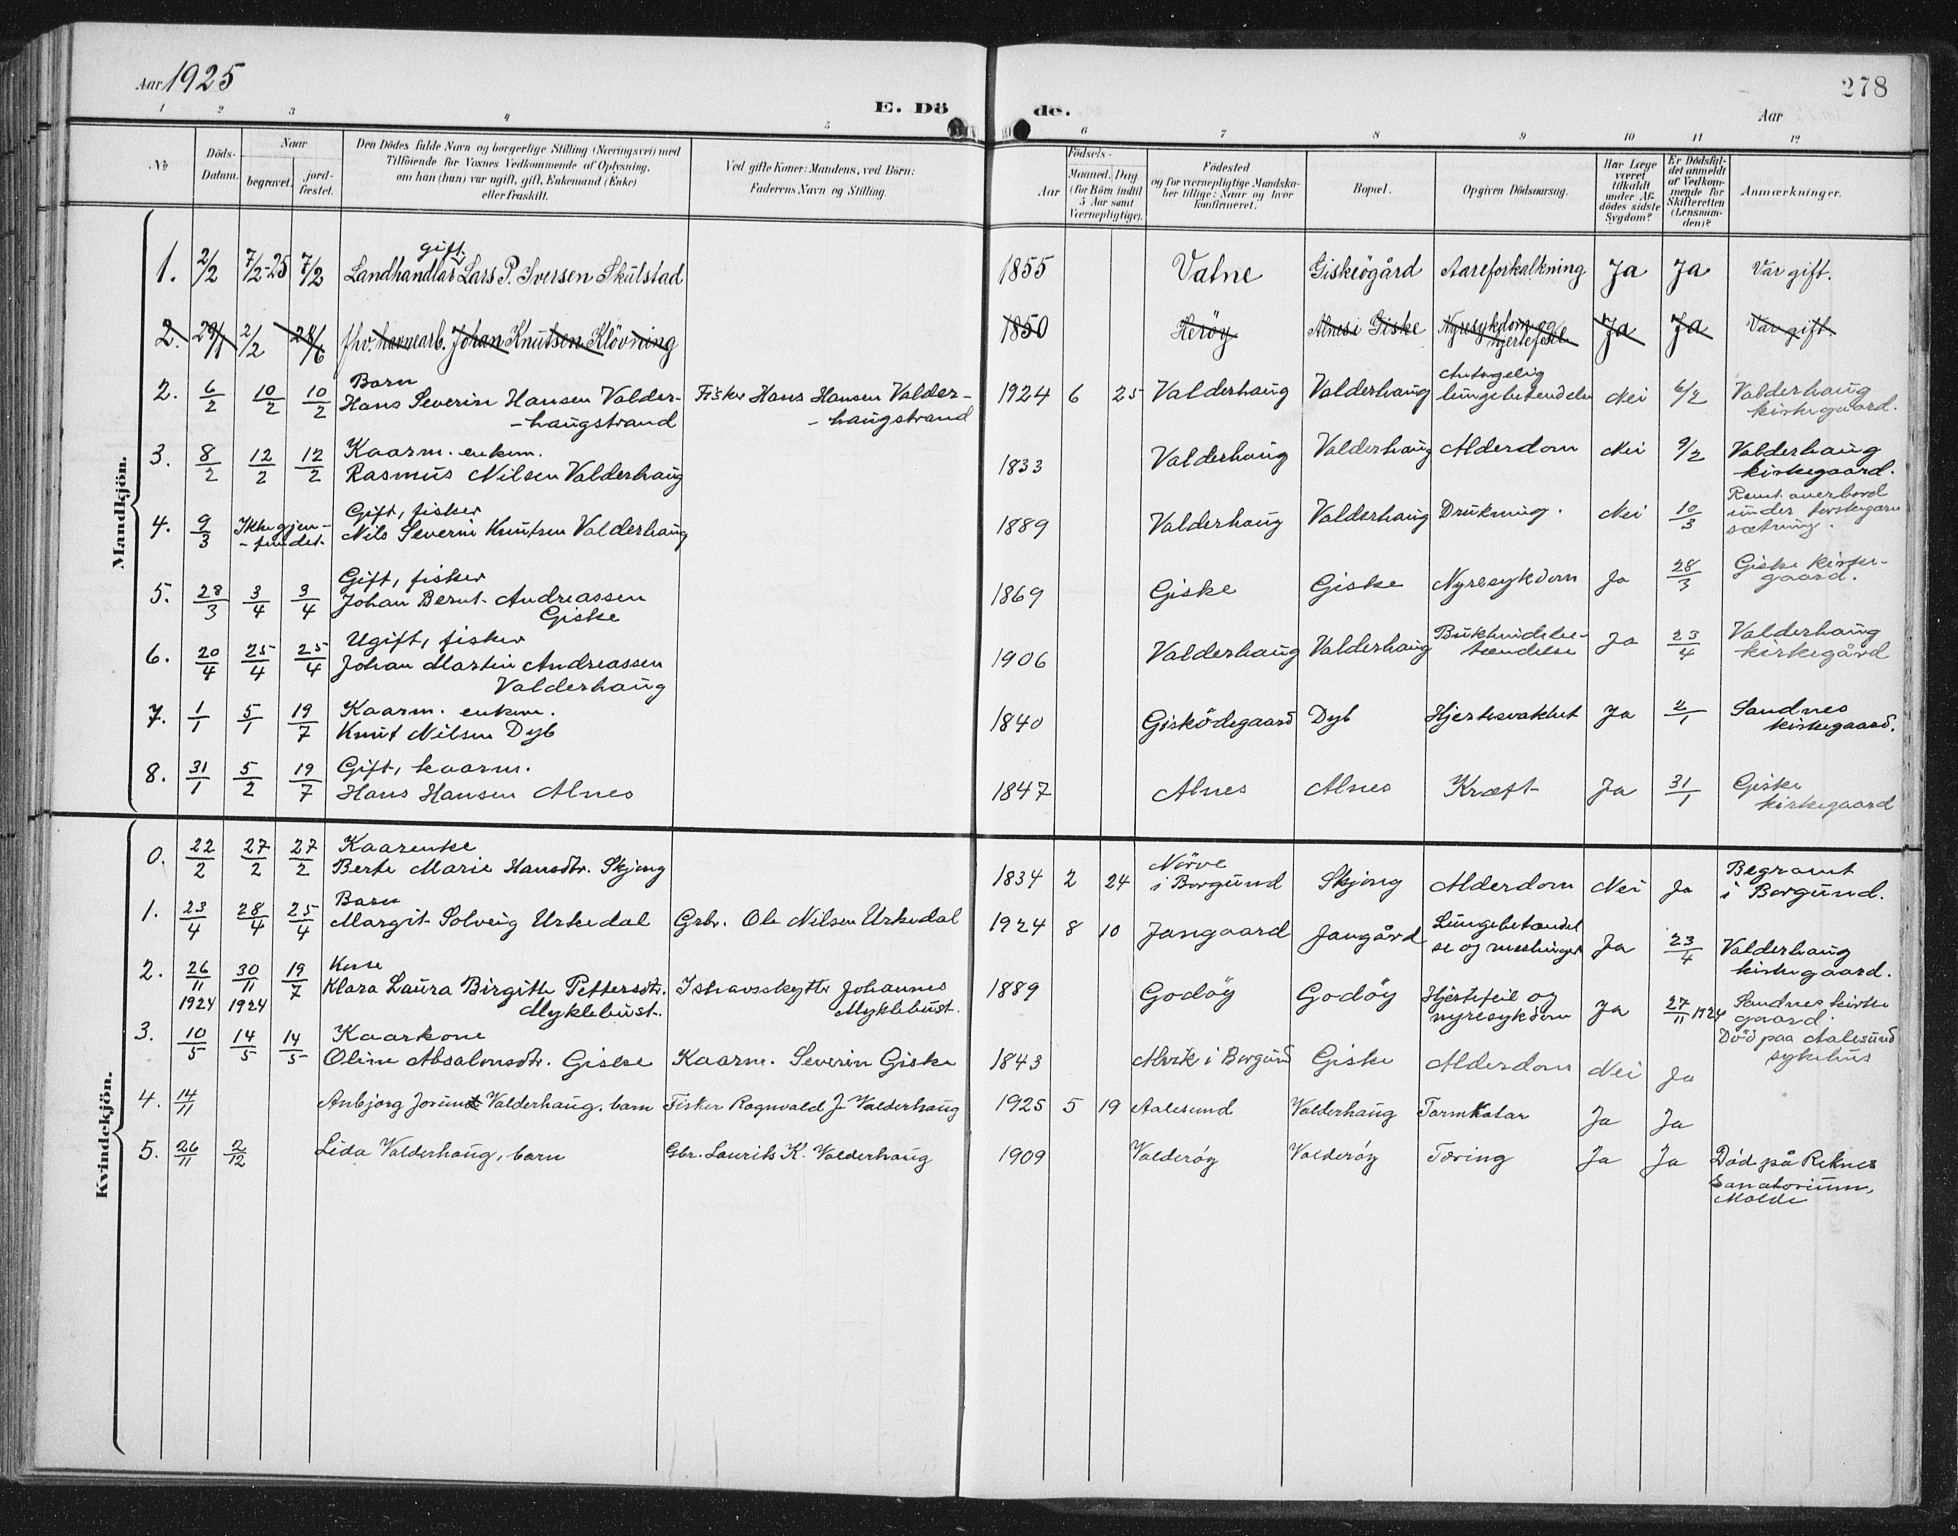 Aar 1925
278
E. Dö de.
Aar
1 2 3 4 5 6 7 8 9 10 11 12
No
Döds-Datum.
Naar
begravet.
jord-fæstet.
Den Dödes fulde Navn og borgerlige Stilling (Næringsvei) med
Tilföiende for Voxnes Vedkommende af Oplysning,
om han (hun) var ugift, gift, Enkemand (Enke)
eller fraskilt.
Ved gifte Koner: Mandens, ved Börn:
Faderens Navn og Stilling.
Aar
Födsels-
Maaned. Dag
(for Börn indtil
5 Aar samt
Værnepligtige).
Födested
og for værnepligtige Mandska-
ber tillige: Naar og hvor
konfirmeret.
Bopæl.
Opgiven Dödsaarsag.
Har Læge
været
tilkaldt
under Af-
dödes sidste
Sygdom?
Er Dödsfal-
det anmeldt
af Vedkom-
mende for
Skifteretten
(Lensman-
den)?
Anmærkninger.
Mandkjön.
gift
1. 2/2 7/2-25 7/2 Landhandlar Lars P. Iversen Skulstad 1855 Vatne Giskeögård Aareforkalkning Ja Ja Var gift.
2. 29/1 2/2 28/6 fhv. havnearb. Johan Knutsen Klövning 1850 Heröy Alnes i Giske Nyresykdom og Ja Ja Var gift.
hjertefeil
Barn Antagelig
2. 6/2 10/2 10/2 Hans Severin Hansen Valder- Fisker Hans Hansen Valder- 1924 6 25 Valderhaug Valderhaug lungebetendelse Nei 6/2 Valderhaug
-haugstrand -haugstrand kirkegaard.
3. 8/2 12/2 12/2 Kaarm. enkem. 1833 Valderhaug Valderhaug Alderdom Nei 9/2 Valderhaug
Rasmus Nilsen Valderhaug kirkegaard.
4. 9/3 Ikke gjen- Gift, fisker 1889 Valderhaug Valderhaug Drukning. Nei 10/3 overbord
-fundet. Nils Severin Knutsen Valderhaug under torskegarn
sætning.
5. 28/3 3/4 3/4 Gift, fisker 1869 Giske Giske Nyresykdom Ja 28/3 Giske kirke-
Johan Bernt Andreassen gaard.
Giske
6. 20/4 25/4 25/4 Ugift, fisker 1906 Valderhaug Valderhaug Bukhindebe- Ja 23/4 Valderhaug
Johan Martin Andreassen tændelse kirkegård
Valderhaug
7. 1/1 5/1 19/7 Kaarm. enkem. 1840 Gisködegaard Dyb Hjertesvakhet Ja 2/1 Sandnes
Knut Nilsen Dyb kirkegaard.
8. 31/1 5/2 19/7 Gift, kaarm. 1847 Alnes Alnes Kræft Ja 31/1 Giske
Hans Hansen Alnes kirkegaard
Kvindekjön.
0. 22/2 27/2 27/2 Kaarenke 1834 2 24 Nörve Skjong Alderdom Nei Ja Begravet
Berte Marie Hansdtr. Skjong i Borgund i Borgund.
Barn
1. 23/4 28/4 25/4 Margit Solveig Urkedal Grbr. Ole Nilsen Urkedal 1924 8 10 Jangaard Jangård Lungebetændel Ja 23/4 Valderhaug
se og meslinger kirkegaard.
Kone
2. 26/11 30/11 19/7 Klara Laura Birgitte Pettersdtr. Ishavsskytter Johannes 1889 Godöy Godöy Hjertefeil og Ja 27/11 1924 Sandnes kirke
1924 1924 Myklebust. Myklebust. nyresykdom gaard.
3. 10/5 14/5 14/5 Kaarkone Död paa Aalesund
Oline Absalonsdtr. Giske Kaarm. Severin Giske 1843 Alvik i Borgund Giske Alderdom Nei Ja sykehus
4. 14/11 Anbjorg Jorun Valderhaug. barn Fisker Rognvald J. Valderhaug 1925 5 19 Aalesund Valderhaug Tarmkatar Ja Ja
5. 26/11 2/12 Lida Valderhaug, barn Gbr. Laurits K. Valderhaug 1909 Valderöy Valderöy Tæring Ja Ja Död på Reknes
Sanatorium,
Molde